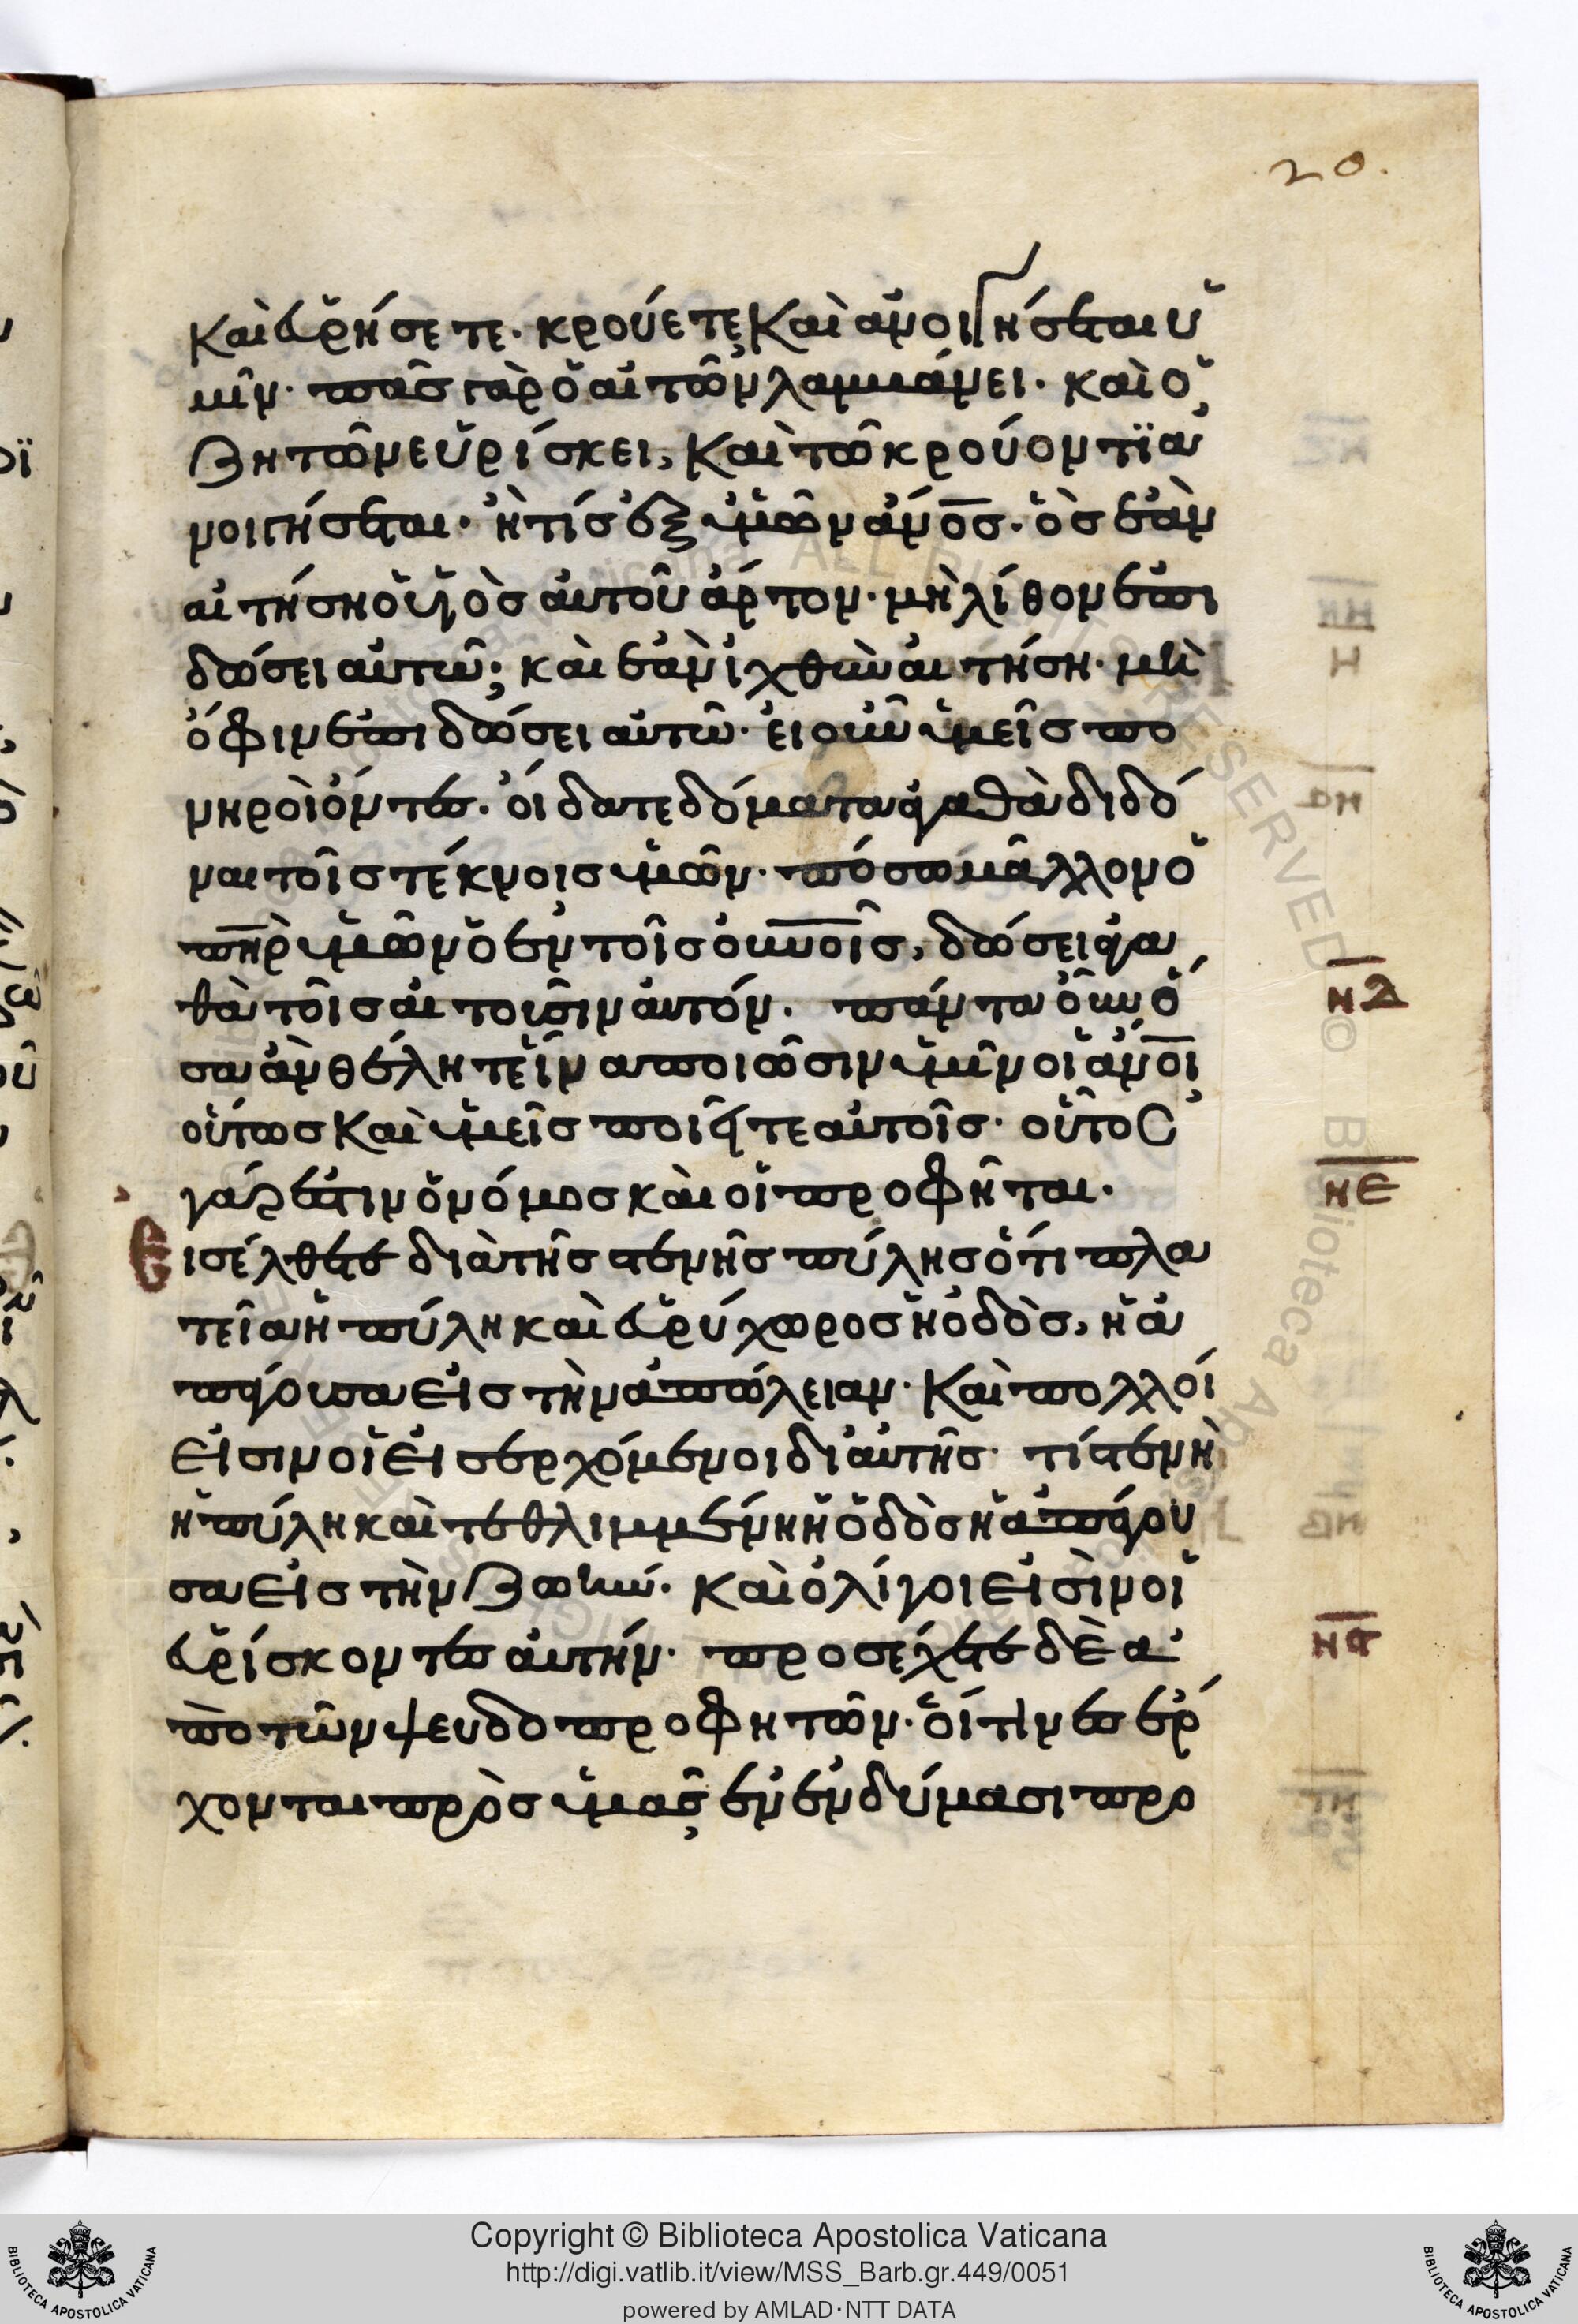 20.
καὶ εὑρήσετε· κρούετε, καὶ ἀνοιγήσεται ὑ
μῖν· πᾶς γὰρ ὁ αἰτῶν λαμβάνει· καὶ ὁ
ζητῶν εὑρίσκει, καὶ τῶ κρούοντι ἀ
νοιγήσεται· ἢ τίς ἐξ ὑμῶν ἄν̅ο̅ς̅· ὃς ἐὰν
αἰτήση ὁ υἱὸς αὐτοῦ ἄρτον· μὴ λίθον ἐπι
δώσει αὐτῶ; καὶ ἐὰν ἰχθὺν αἰτήση· μὴ
ὄφιν ἐπιδώσει αὐτῶ· εἰ οὖν ὑμεῖς πο
νηροὶ ὄντες· οἴδατε δόματα ἀγαθὰ διδό
ναι τοῖς τέκνοις ὑμῶν· πόσω μᾶλλον ὁ
π̅η̅ρ̅ ὑμῶν ὁ ἐν τοῖς ο̅υ̅ν̅ο̅ι̅ς̅, δώσει ἀγα
θὰ τοῖς αἰτοῦσιν αὐτόν· πάντα οὖν ὅ
σα ἂν θέλητε ἵνα ποιῶσιν ὑμῖν οἱ ἄν̅ο̅ι̅,
οὕτως καὶ ὑμεῖς ποιεῖτε αὐτοῖς· οὗτος
γάρ ἐστιν ὁ νόμος καὶ οἱ προφῆται·
Εἰσέλθετε διὰ τῆς στενῆς πύλης ὅτι πλα
τεῖα ἡ πύλη καὶ εὐρύχωρος ἡ ὁδὸς, ἡ ἀ
πάγουσα εἰς τὴν ἀπώλειαν· καὶ πολλοί
εἰσιν οἱ εἰσερχόμενοι δι᾽ αὐτῆς· τί στενὴ
ἡ πύλη καὶ τεθλιμμένη ἡ ὁδὸς ἡ ἀπάγου
σα εἰς τὴν ζωήν· καὶ ὀλίγοι εἰσὶν οἱ
εὑρίσκοντες αὐτήν· προσέχετε δὲ ἀ
πὸ τῶν ψευδοπροφητῶν· οἵτινες ἔρ
χονται πρὸς ὑμᾶς, ἐν ἐνδύμασι προ
ν̅δ̅
ν̅ε̅
ν̅ϛ̅
Copyright © Biblioteca Apostolica Vaticana
http://digi.vatlib.it/view/MSS_Barb.gr.449/0051
powered by AMLAD·NTT DATA